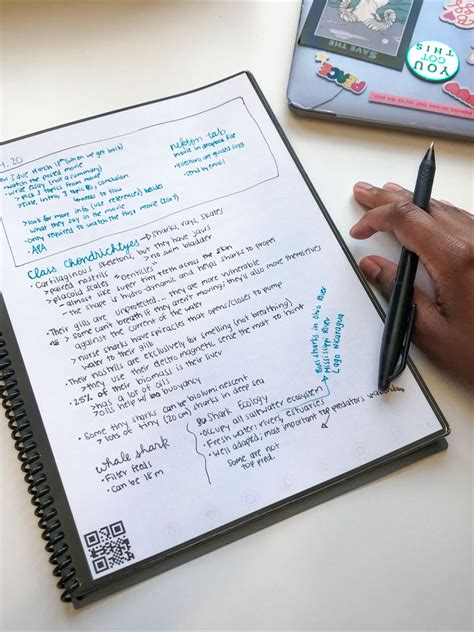 nekton lab
movie in dropbox file
questions are guided
send by email
watch the posted movie
write essay (not a summary)
look for more info (use references) besides
what they say in the movie
only required to watch the first movie
APA
Class Chondrichtyes → sharks, rays, skates
Cartilaginous skeletons, but they have jaws
paired nostrils
no swim bladder
placoid scales
denticles
almost like super tiny teeth across the skin
the shape is hydro-dynamic and helps sharks to propel themselves
Their gills are unprotected... they are more vulnerable
some can't breath if they aren't moving; they'll also move
against the current of the water
nurse sharks have spiracles that opens/closes to pump
water to their gills
Their nostrils are exclusively for smelling (not breathing)
they use their electro magnetic sense the most to hunt
25% of their biomass is their liver
has a lot of oils
oils help w/ buoyancy
Some tiny sharks can be bioluminescent
lots of tiny (20 cm) sharks in deep sea
whale shark
Filter feeds
can be 18 m
Shark Ecology
occupy all saltwater ecosystem
Fresh water: rivers, estuaries
Well adapted; most important top predators worldwide
Some are not
top pred.
Bull sharks in Ohio River
Mississippi River
Lago Nicaragua
SAVE THE
YOU
GOT
THIS
PEACE